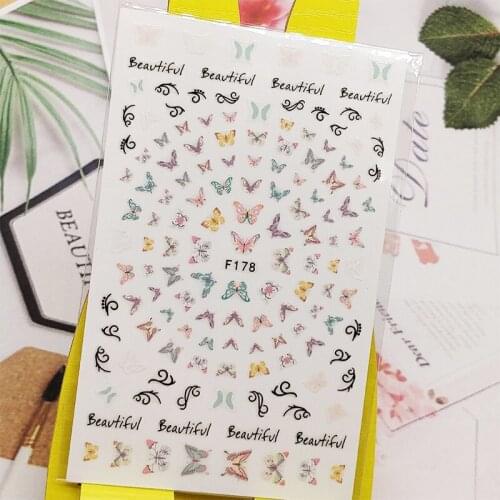 Beautiful Beautiful Beautiful Beautiful
F178
Beautiful Beautiful Beautiful Beautiful
BEAUTY
Date
Dear Friend